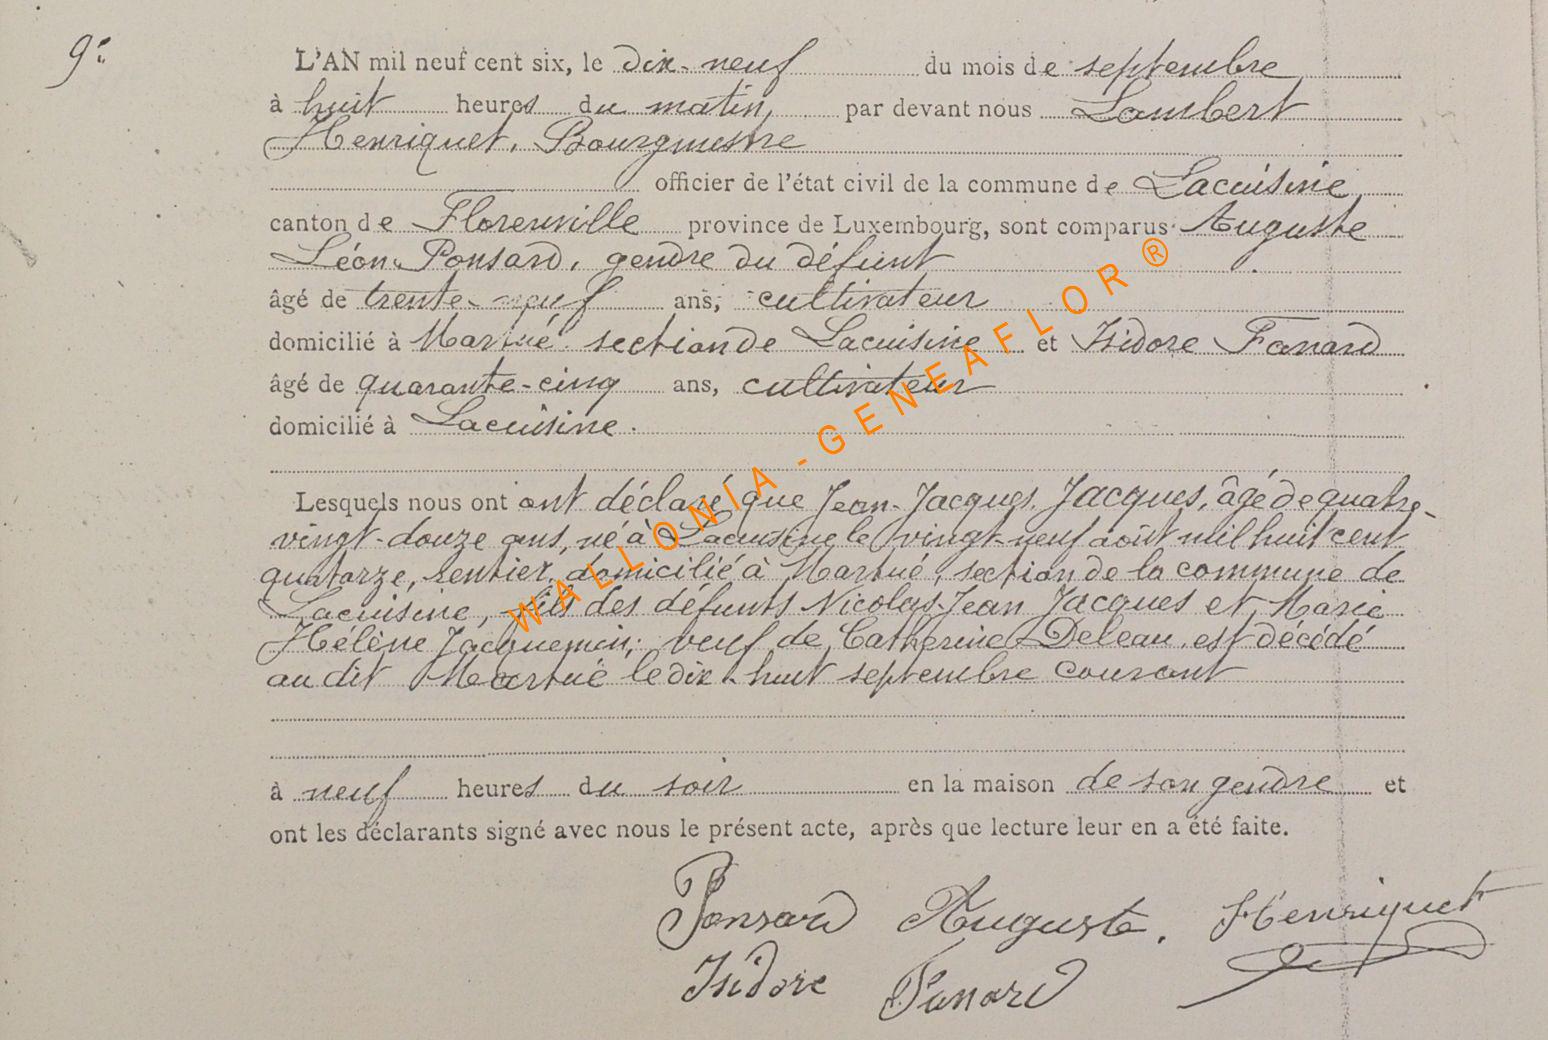 9:
L'AN mil neuf cent six, le dix-neuf du mois de septembre
à huit heures du matin, par devant nous Lambert
Henriquet, Bourgmestre
officier de l'état civil de la commune de Lacuisine
canton de Florenville province de Luxembourg, sont comparus Auguste
Léon Ponsard, gendre du défunt
âgé de trente-neuf ans, cultivateur
domicilié à Martué section de Lacuisine et Isidore Fanard
âgé de quarante-cinq ans, cultivateur
domicilié à Lacuisine.
Lesquels nous ont ont déclaré que Jean-Jacques Jacques, âgé de quatre-
vingt-douze ans, né à Lacuisine le vingt-neuf août mil huit cent
quatorze, rentier, domicilié à Martué, section de la commune de
Lacuisine, fils des défunts Nicolas-Jean Jacques et Marie
Hélène Jacquemin, veuf de Catherine Deleau, est décédé
au dit Martué le dix-huit septembre courant
à neuf heures du soir en la maison de son gendre et
ont les déclarants signé avec nous le présent acte, après que lecture leur en a été faite.
Ponsard Auguste. Henriquet
Isidore Fanard
WALLONIA-GENEAFLOR®